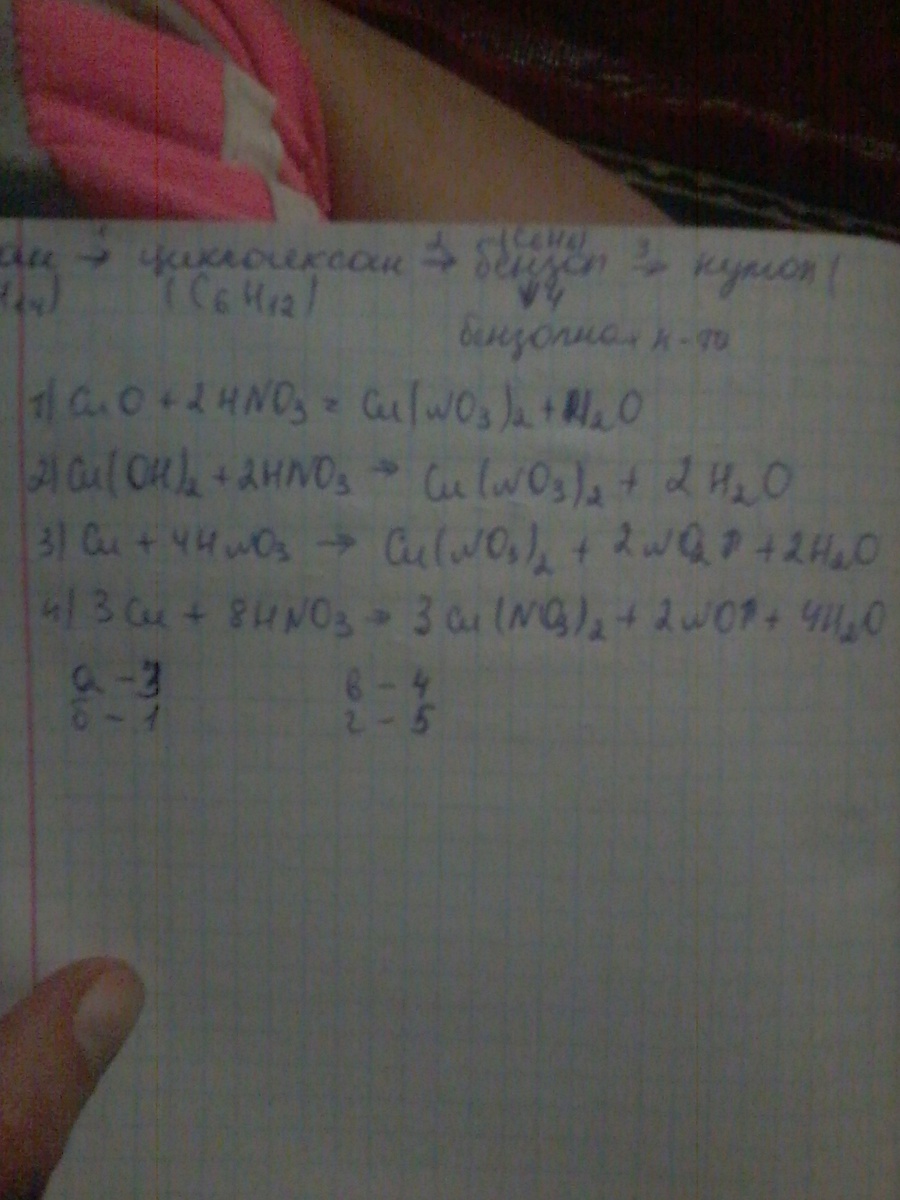 ан 1→ циклогексан 2→ бензол (C6H6) 3→ кумол (
H14) (C6H12) ↓4
бензойная к-та
1) CuO + 2HNO3 = Cu(NO3)2 + H2O
2) Cu(OH)2 + 2HNO3 → Cu(NO3)2 + 2H2O
3) Cu + 4HNO3 → Cu(NO3)2 + 2NO2↑ + 2H2O
4) 3Cu + 8HNO3 → 3Cu(NO3)2 + 2NO↑ + 4H2O
а - 3 в - 4
б - 1 г - 5